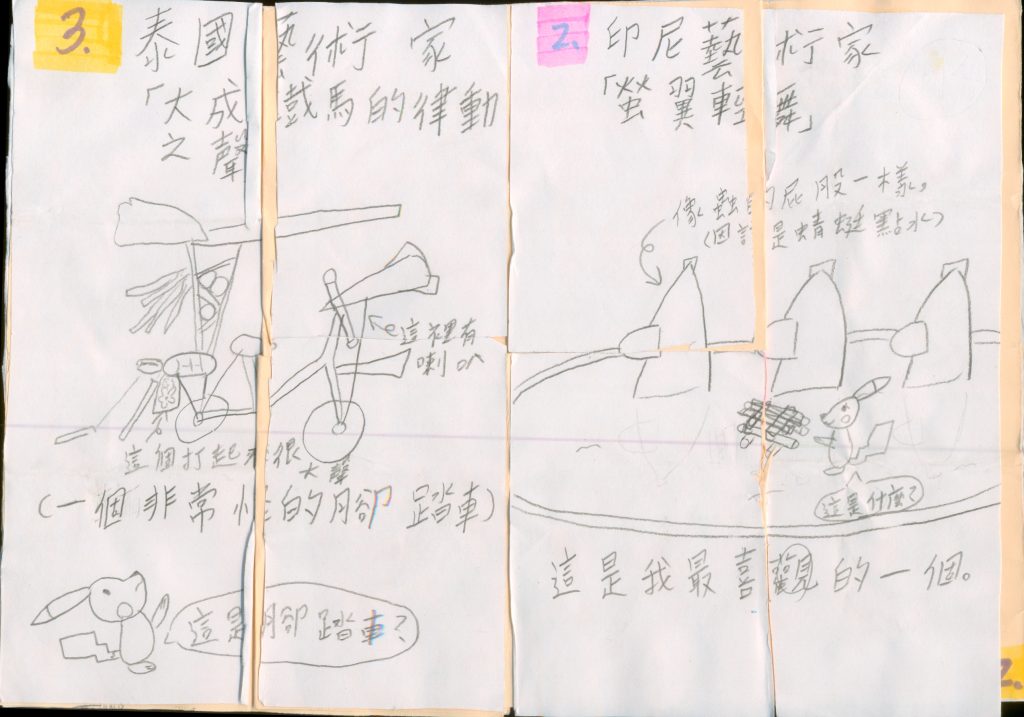 3.
泰國藝術家
「大成戲馬的律動
之聲
這裡有
喇叭
這個打起來很
大聲
(一個非常怪的腳踏車)
這是腳踏車?
2.
印尼藝術家
「螢翼輕舞」
像蟲的屁股一樣。
(因該是蜻蜓點水)
這是什麼?
這是我最喜觀的一個。
2.